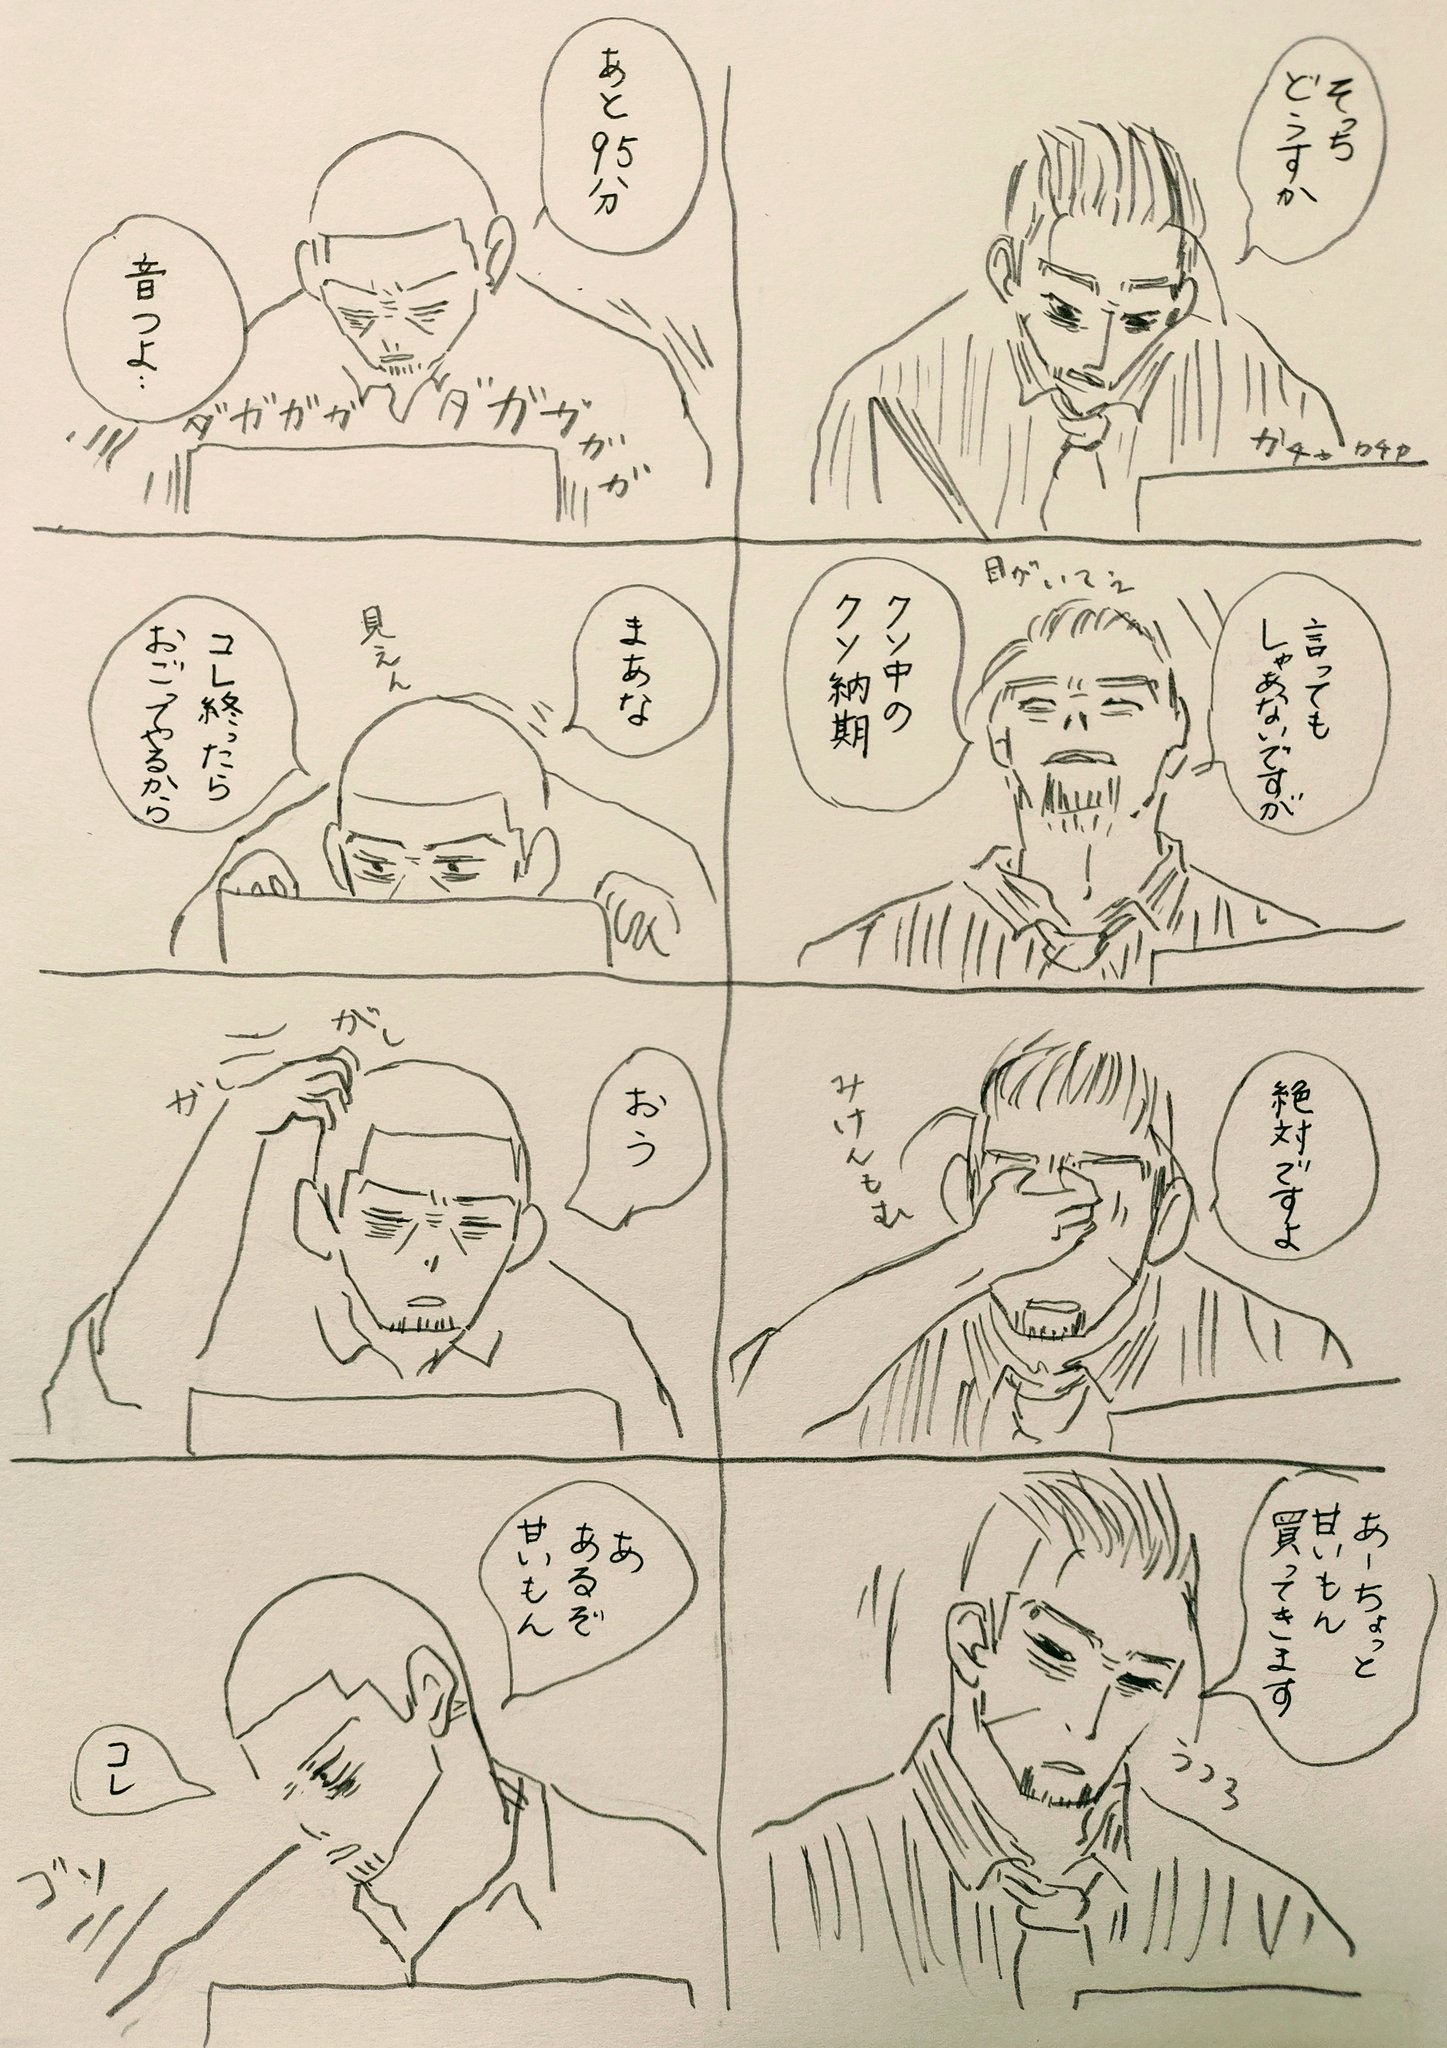 そっち
どうすか
ガチャ カチャ
あと95分
音つよ…
ダガガガ
ダガガガガ
言っても
しゃあないですが
目がいてえ
クソ中の
クソ納期
まあな
見えん
コレ終ったら
おごってやるから
絶対ですよ
みけんもむ
おう
がし
ガし
あーちょっと
甘いもん
買ってきます
うつろ
あ
あるぞ
甘いもん
コレ
ゴソ